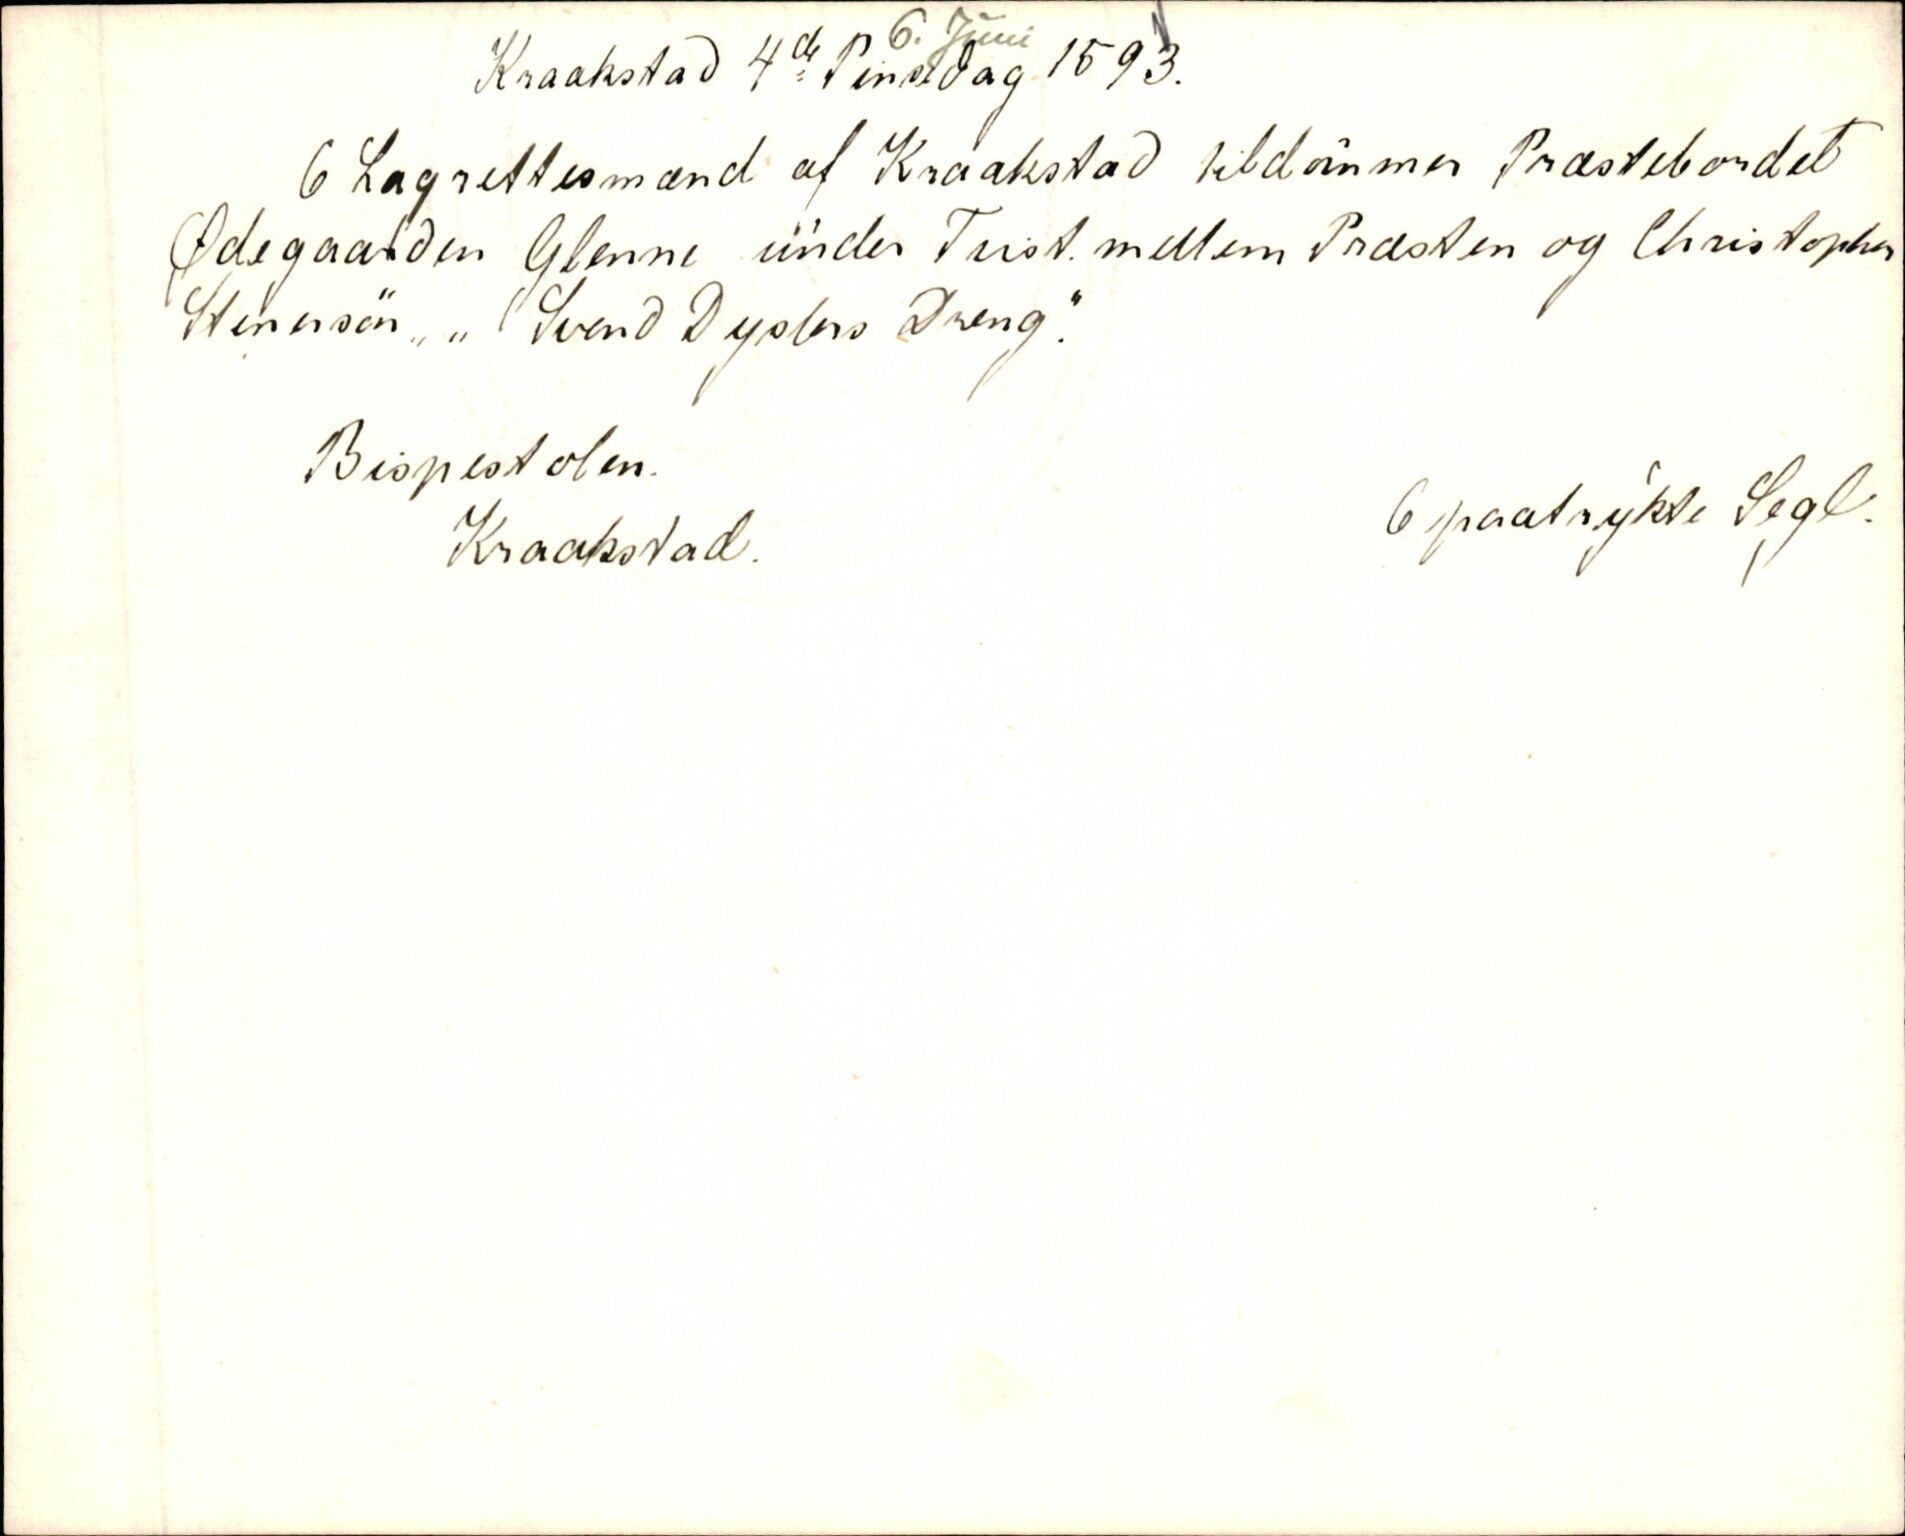 6. Juni
Kraakstad 4de Pinsedag 1593.
6 Lagrettesmænd af Kraakstad tildömmer Præstebordet
Ødegaarden Glenne under Tvist mellem Præsten og Christopher
Stenersön, „Svend Dyslers Dreng".
Bispestolen.
6 paatrykte Segl.
Kraakstad.